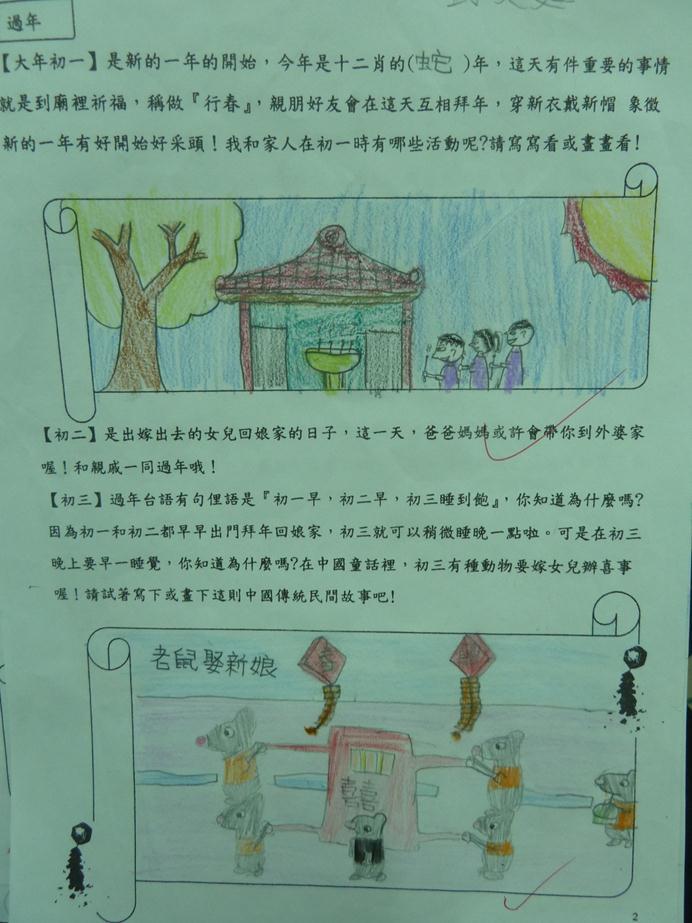 過年
【大年初一】是新的一年的開始，今年是十二肖的(蛇)年，這天有件重要的事情
就是到廟裡祈福，稱做『行春』，親朋好友會在這天互相拜年，穿新衣戴新帽 象徵
新的一年有好開始好采頭！我和家人在初一時有哪些活動呢?請寫寫看或畫畫看!
【初二】是出嫁出去的女兒回娘家的日子，這一天，爸爸媽媽或許會帶你到外婆家
喔！和親戚一同過年哦！
【初三】過年台語有句俚語是『初一早，初二早，初三睡到飽』，你知道為什麼嗎?
因為初一和初二都早早出門拜年回娘家，初三就可以稍微睡晚一點啦。可是在初三
晚上要早一睡覺，你知道為什麼嗎?在中國童話裡，初三有種動物要嫁女兒辦喜事
喔！請試著寫下或畫下這則中國傳統民間故事吧!
老鼠娶新娘
春
囍
2